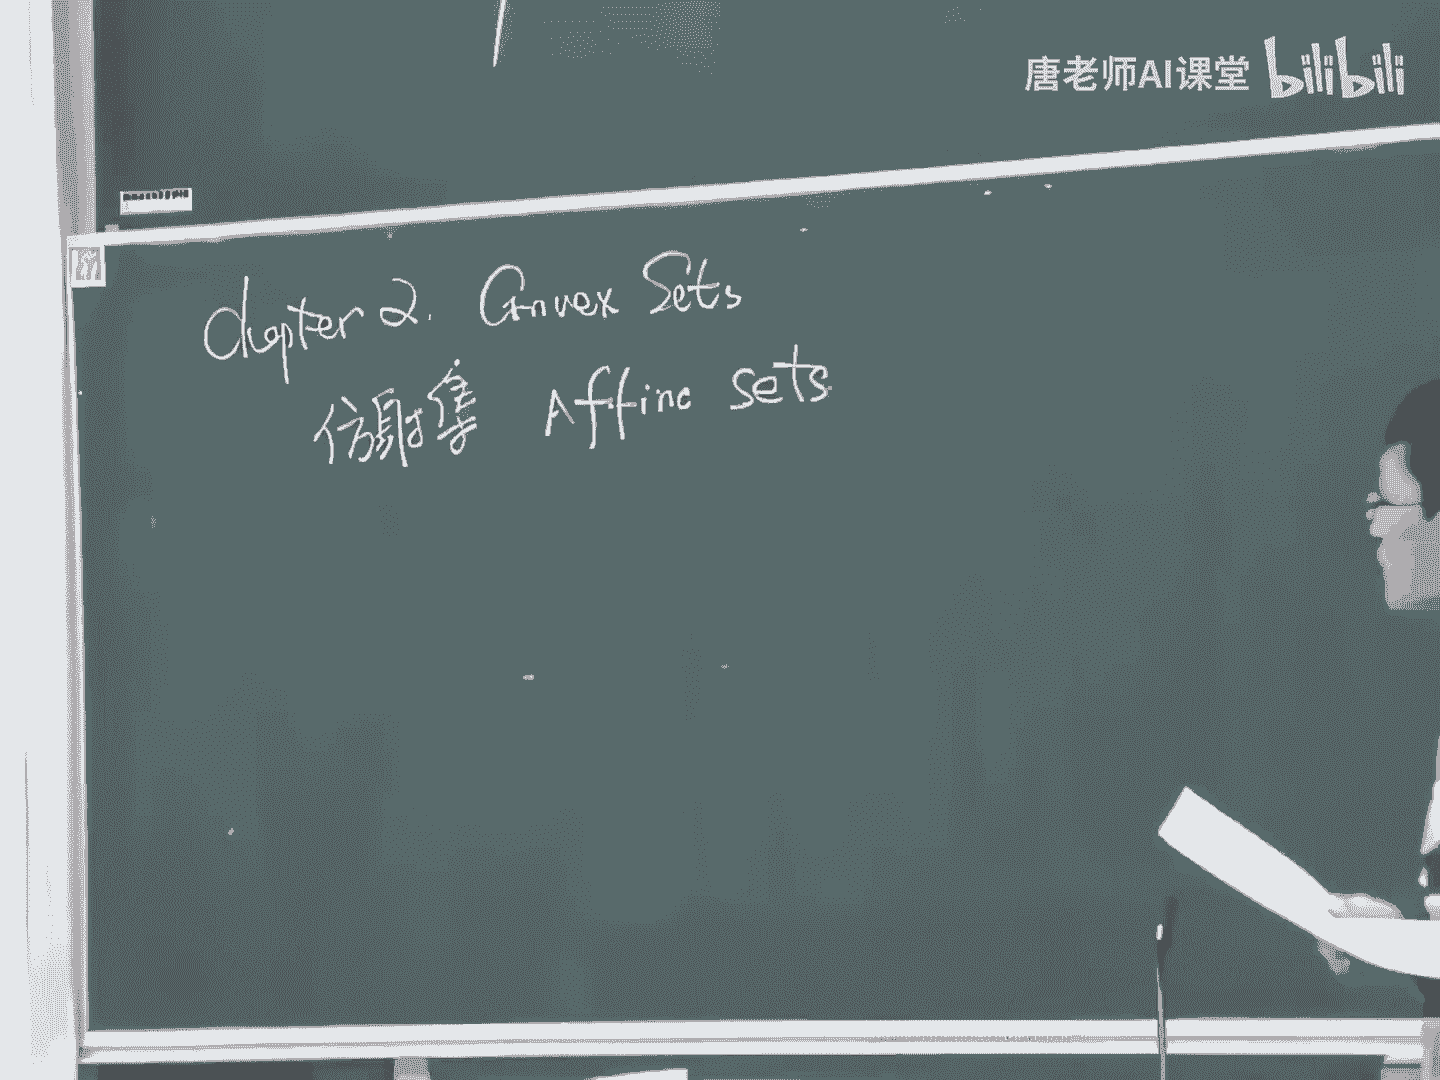 唐老师AI课堂 bilibili
Chapter 2. Convex Sets
仿射集 Affine sets